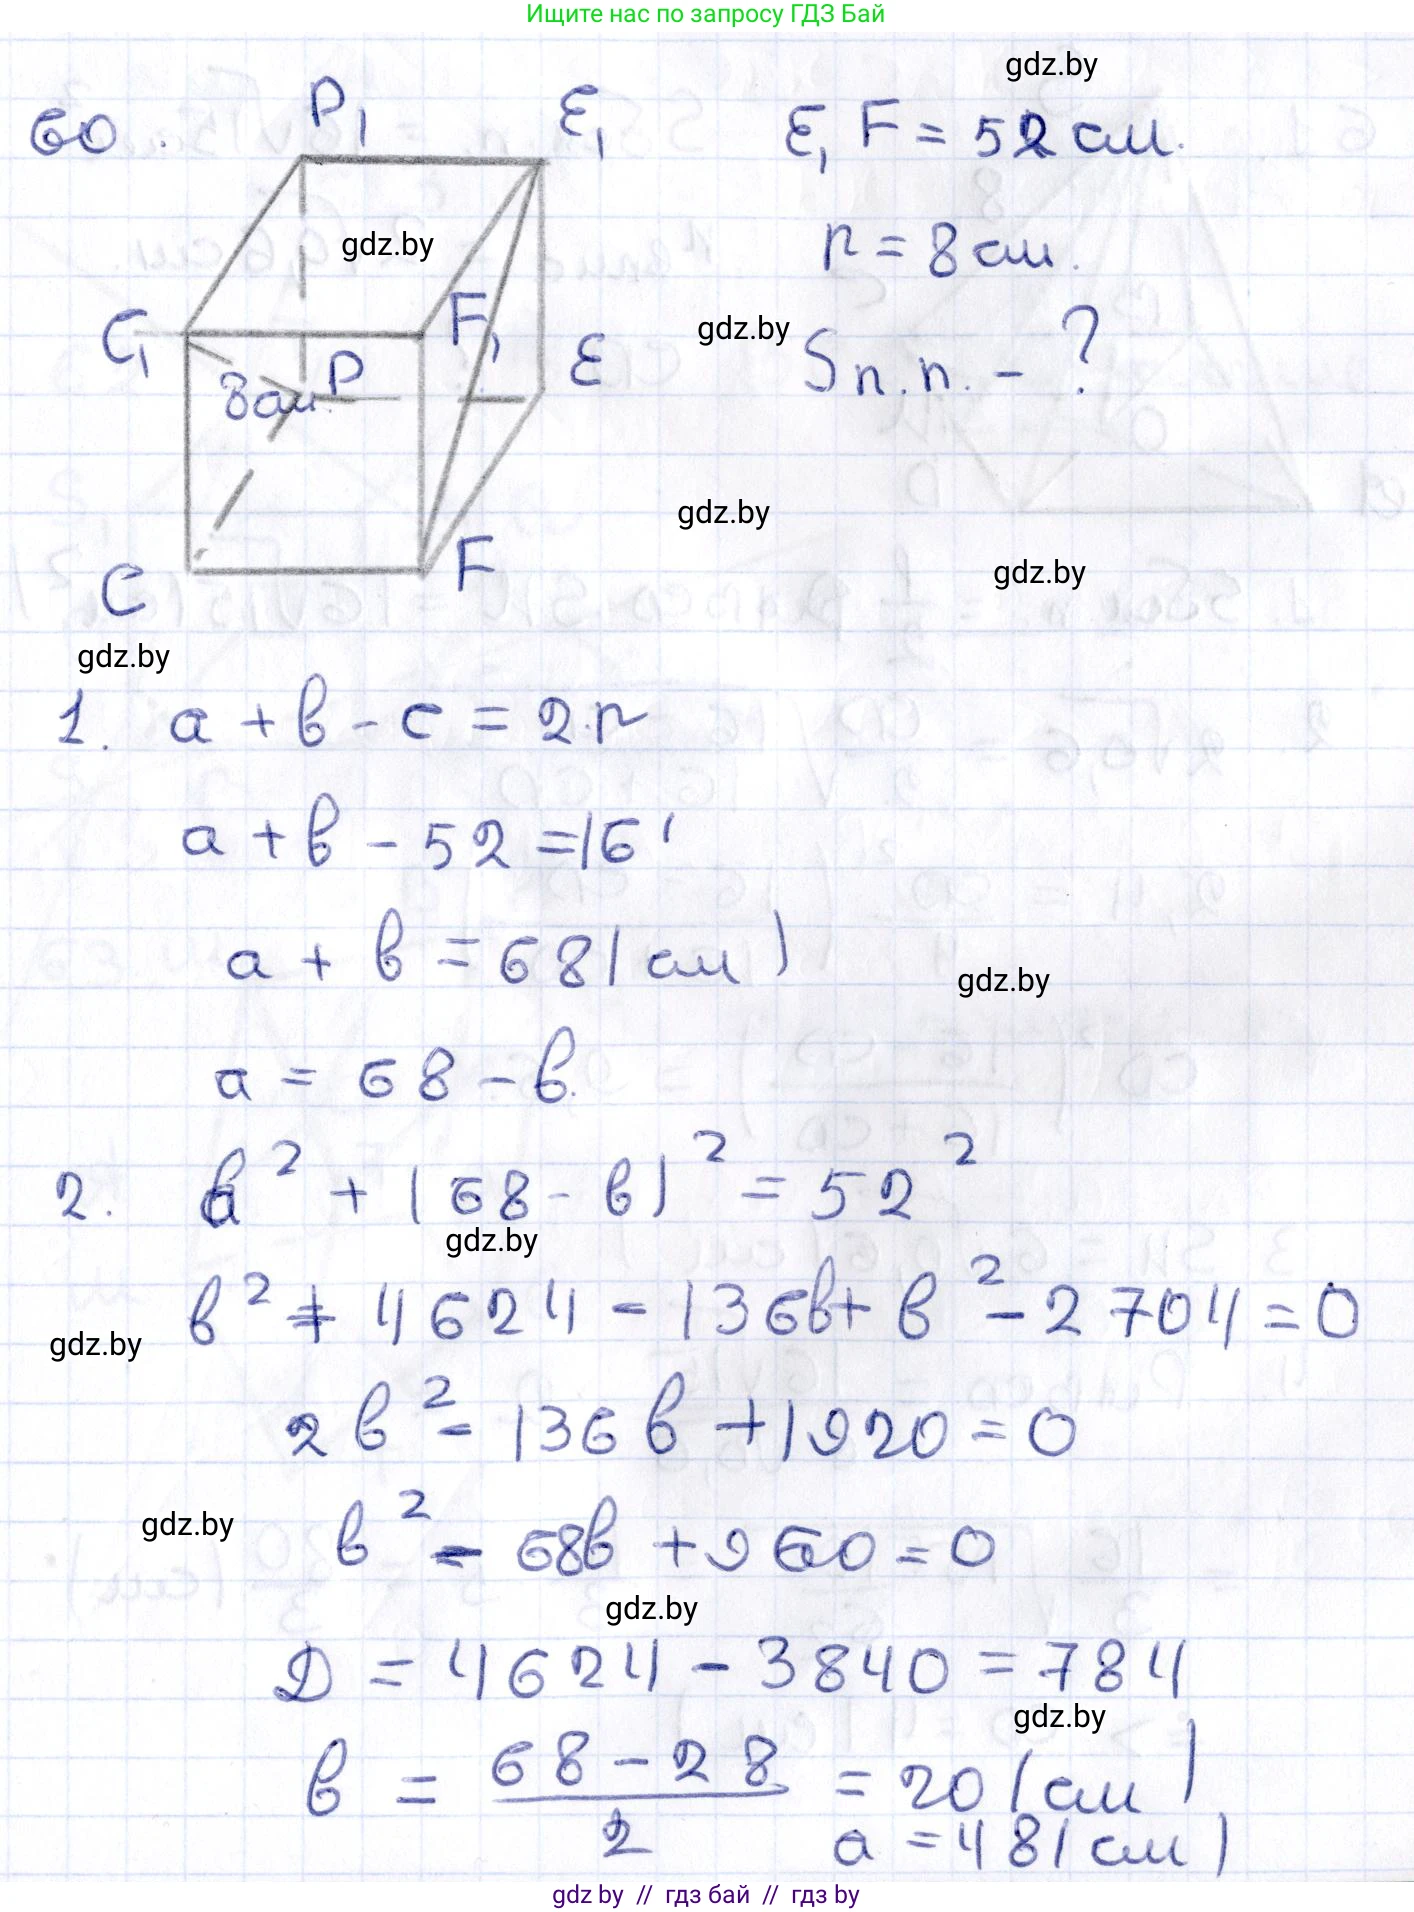 Ищите нас по запросу ГДЗ Бай
gdz.by
60.
P₁
E₁
E₁F = 52 см.
gdz.by
r = 8 см.
C₁
F₁
gdz.by
Sп.п. - ?
8см.
P
E
gdz.by
gdz.by
C
F
gdz.by
1. a + b - c = 2·r
a + b - 52 = 16
a + b = 68 (см)
gdz.by
a = 68 - b.
2. b² + (68 - b)² = 52²
gdz.by
b² + 4624 - 136b + b² - 2704 = 0
gdz.by
2b² - 136b + 1920 = 0
gdz.by
b² - 68b + 960 = 0
gdz.by
D = 4624 - 3840 = 784
gdz.by
b = (68 - 28)/2 = 20 (см)
a = 48 (см)
gdz.by // гдз бай // гдз by